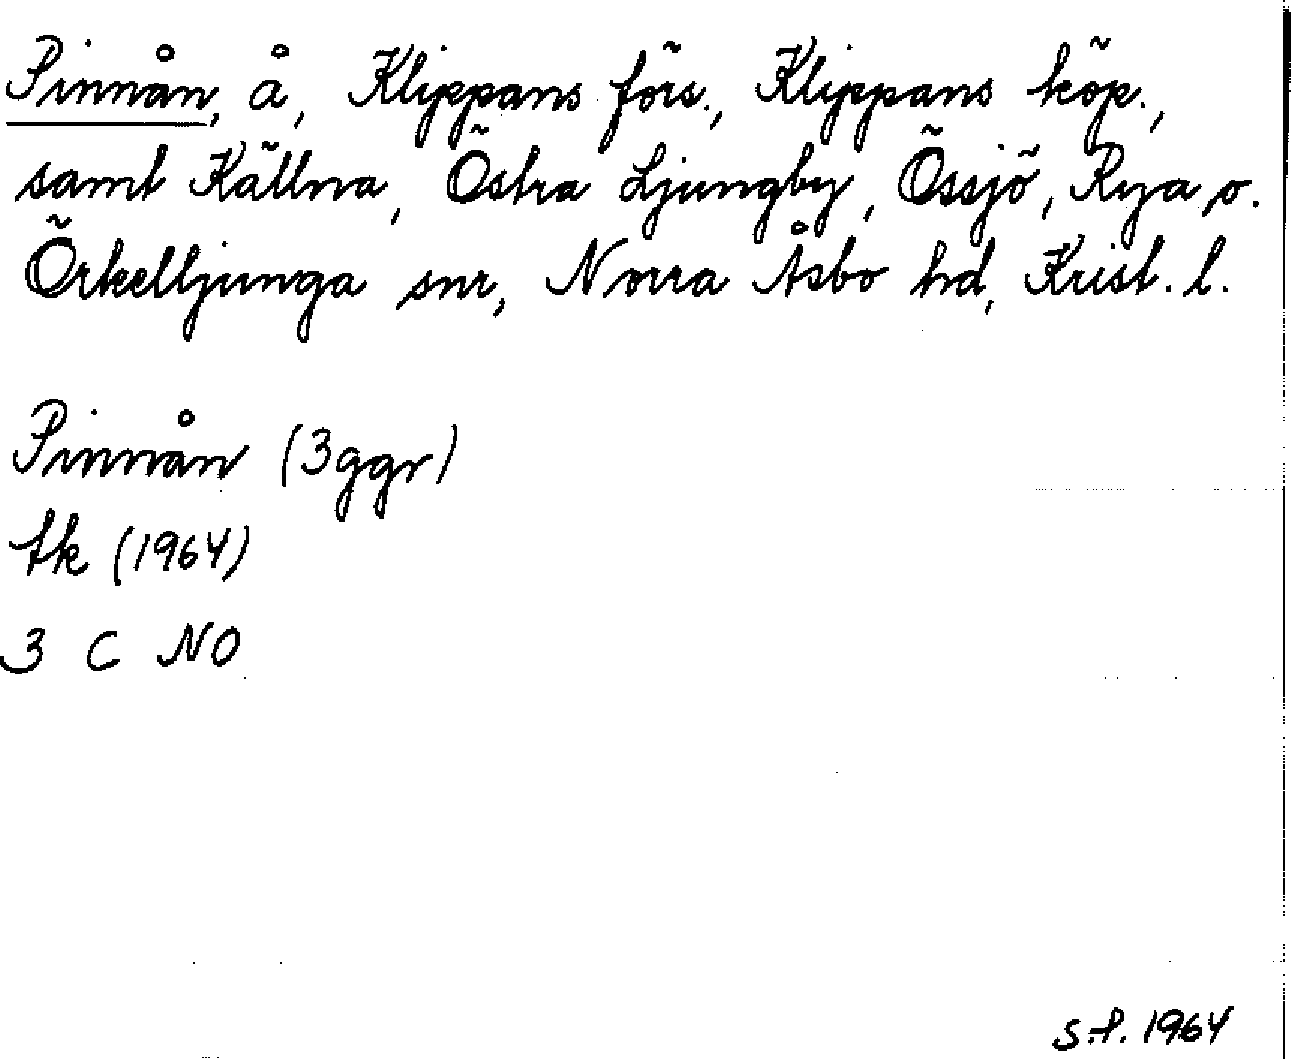 Pinnån, å, Klippans förs., Klippans köp.,
samt Källna, Östra Ljungby, Össjö, Rya o.
Örkelljunga snr, Norra Åsbo hd, Krist. l.
Pinnån (3ggr)
tk (1964)
3 C NO
S.f. 1964